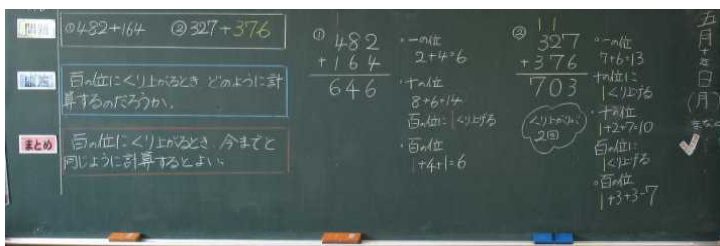 問題
①482+164 ②327+376
百の位にくり上がるとき どのように計
算するのだろうか。
まとめ
百の位にくり上がるとき、今までと
同じように計算するとよい。
①
1
482
+164
646
・一の位
2+4=6
・十の位
8+6=14
百の位に1くり上げる
・百の位
1+4+1=6
②
11
327
+376
703
くり上がりが
2回
・一の位
7+6=13
十の位に
1くり上げる
・十の位
1+2+7=10
百の位に
1くり上げる
・百の位
1+3+3=7
五月十
日(月)